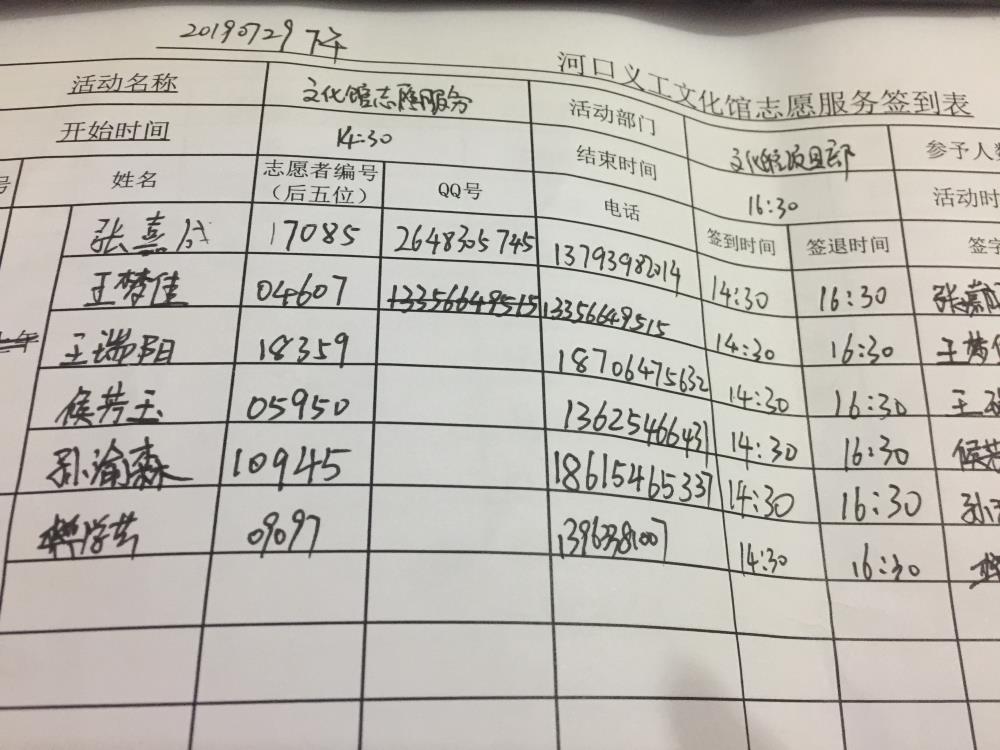 20190729 下午
河口义工文化馆志愿服务签到表
活动名称 文化馆志愿服务 活动部门 文化馆项目部 参予人数
开始时间 14:30 结束时间 16:30 活动时
号 姓名 志愿者编号（后五位） QQ号 电话 签到时间 签退时间 签字
张嘉 17085 2648305745 13793982014 14:30 16:30 张嘉
王梦佳 04607 13356649515 13356649515 14:30 16:30 王梦佳
王瑞阳 18359 18706475632 14:30 16:30 王瑞
侯芳玉 05950 13625466431 14:30 16:30 侯芳
孙渝森 10945 18615465337 14:30 16:30 孙
学芸 09097 14:30 16:30